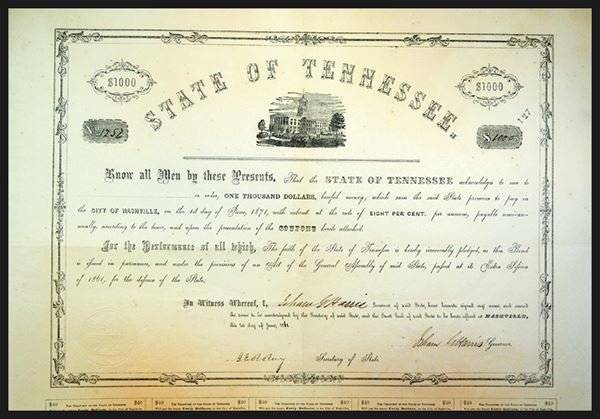 $1000
STATE OF TENNESSEE.
$1000
1252
127
$1000
Know all Men by these Presents, That the STATE OF TENNESSEE acknowledges to owe to
or order, ONE THOUSAND DOLLARS, lawful money, which sum the said State promises to pay in
the CITY OF NASHVILLE, on the 1st day of June, 1871, with interest at the rate of EIGHT PER CENT. per annum, payable semi-an-
nually, according to the tenor, and upon the presentation of the COUPONS hereto attached.
For the Performance of all which, The faith of the State of Tennessee is hereby irrevocably pledged, as this Bond
is issued in pursuance, and under the provisions of an Act of the General Assembly of said State, passed at its Extra Session
of 1861, for the defence of the State.
In Witness Whereof, I, Isham G Harris Governor of said State, have hereunto signed my name, and caused
the same to be countersigned by the Secretary of said State, and the Great Seal of said State to be hereto affixed at NASHVILLE,
this 1st day of June, 1861
Isham G Harris Governor.
Secretary of State.
$40 THE TREASURER OF THE STATE OF TENNESSEE $40
Will pay the bearer Forty Dollars, in the City of Nashville,
$40 THE TREASURER OF THE STATE OF TENNESSEE $40
Will pay the bearer Forty Dollars, in the City of Nashville,
$40 THE TREASURER OF THE STATE OF TENNESSEE $40
Will pay the bearer Forty Dollars, in the City of Nashville,
$40 THE TREASURER OF THE STATE OF TENNESSEE $40
Will pay the bearer Forty Dollars, in the City of Nashville,